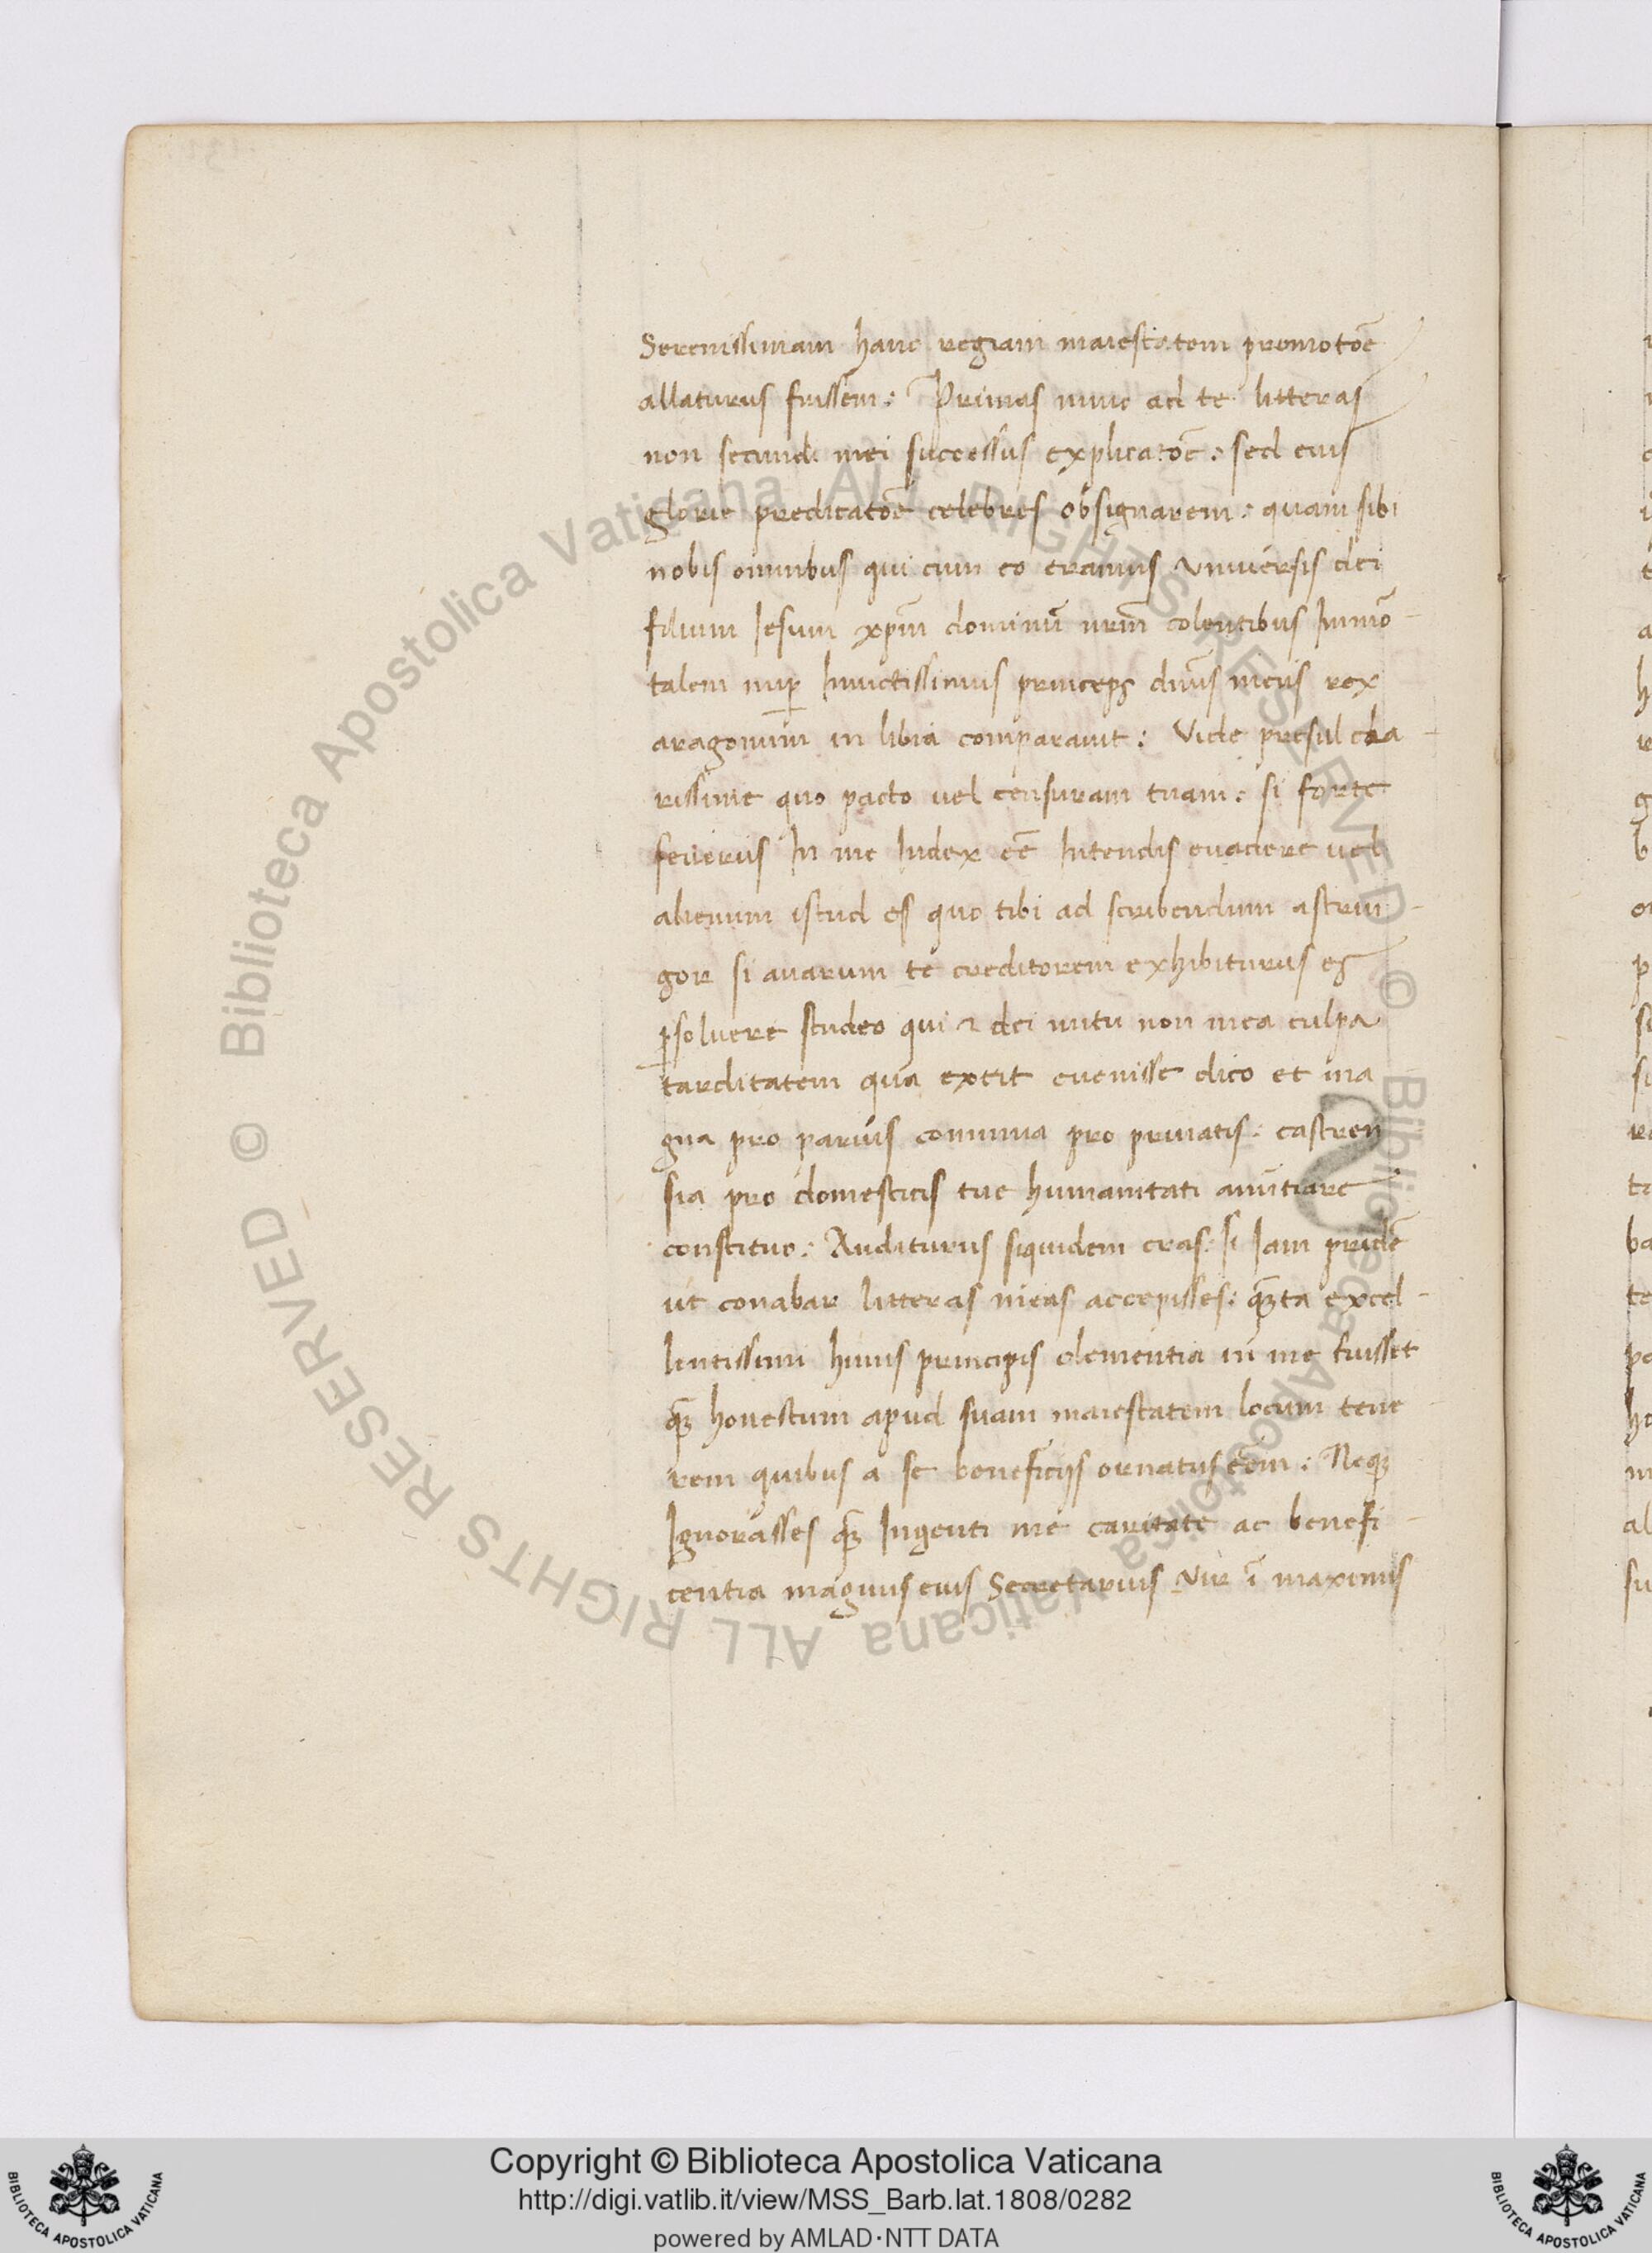 Serenissimam hanc regiam maiestatem promotõe
allaturus fuissem: Primas nunc ad te litteras
non secundi mei successus explicatõe: sed eius
glorie predicatõe celebres obsignarem: quam sibi
nobis omnibus qui cum eo eramus Vniuersis dei
filium Iesum xp̃m dominũ nr̃m colentibus Immõ-
talem nup̱ Inuictissimus princeps diuus meus rex
aragonum in libia comparauit: Vide presul cla-
rissime quo pacto uel censuram tuam: si forte
seuerus In me Iudex eẽ Intendis euadere uel
alienum istud es quo tibi ad scribendum astrin-
gor si auarum te creditorem exhibiturus es
ꝑsoluere studeo qui ⁊ dei nutu non mea culpa
tarditatem qua extit euenisse dico et ma
gna pro paruis comunia pro priuatis: castren
sia pro domesticis tue humanitati anũtiare
constituo: Auditurus siquidem eras: si Iam pridẽ
ut conabar litteras meas accepisses: qᷓꝫta excel-
lentissimi huius principis clementia in me fuisset
qᷓꝫ honestum apud suam maiestatem locum tene-
rem quibus a se beneficijs ornatus eẽm: Neqꝫ
Ignorasses qᷓꝫ Ingenti me caritate ac benefi-
centia magnus eius Secretarius Vir ĩ maximis
Copyright © Biblioteca Apostolica Vaticana
http://digi.vatlib.it/view/MSS_Barb.lat.1808/0282
powered by AMLAD·NTT DATA